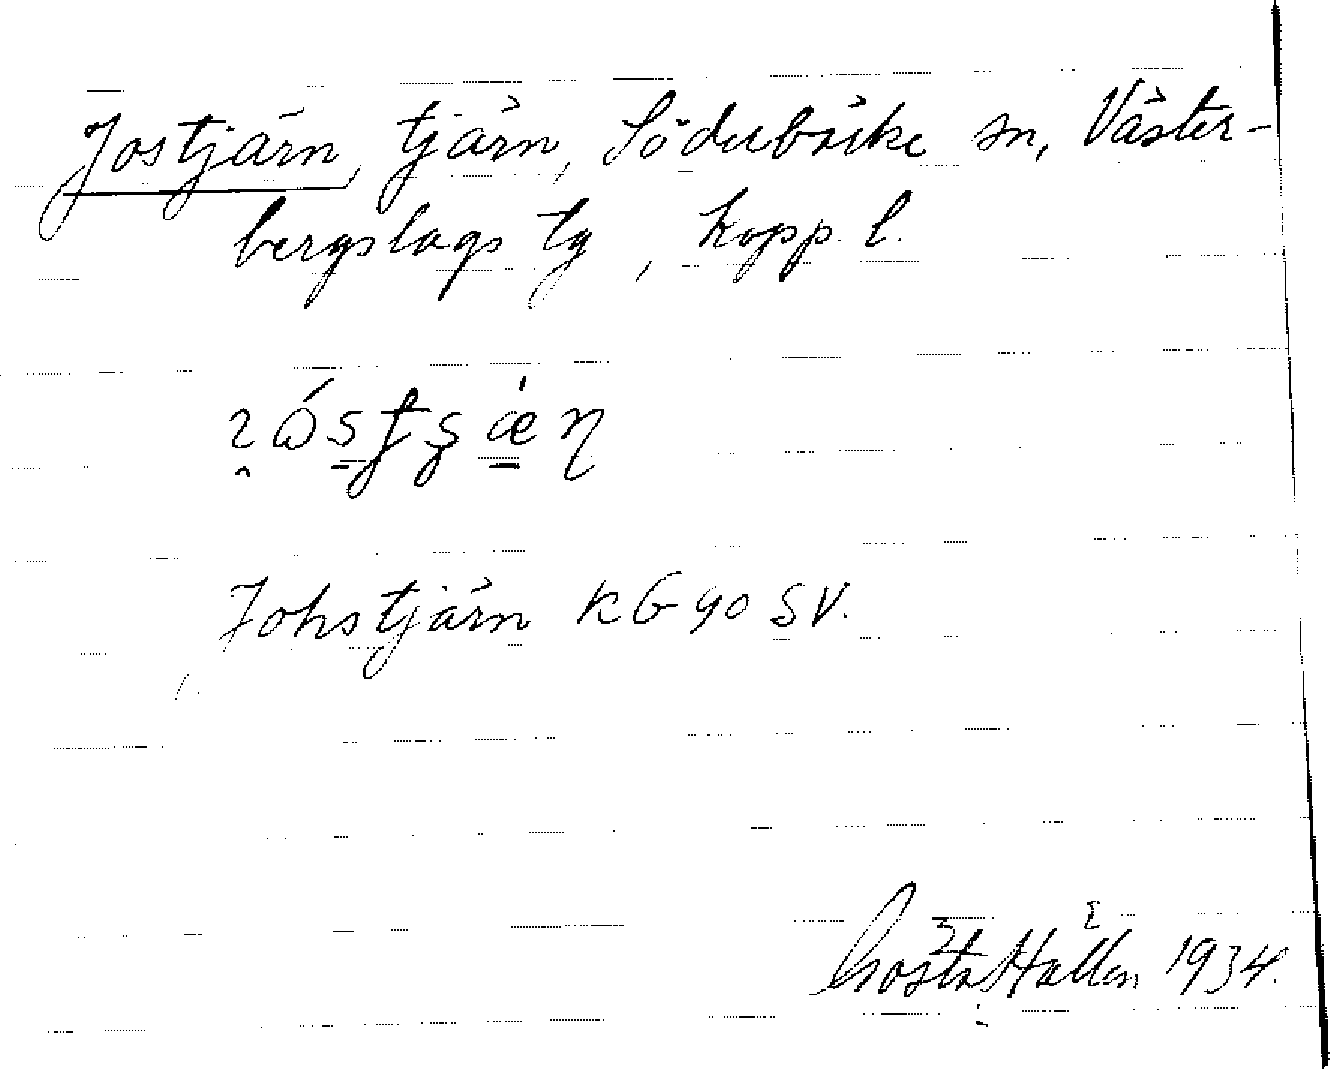 Jostjärn, tjärn, Söderbärke sn, Väster-
bergslags tg, Kopp. l.
Johstjärn KG 90 SV.
Gösta Hallén 1934.